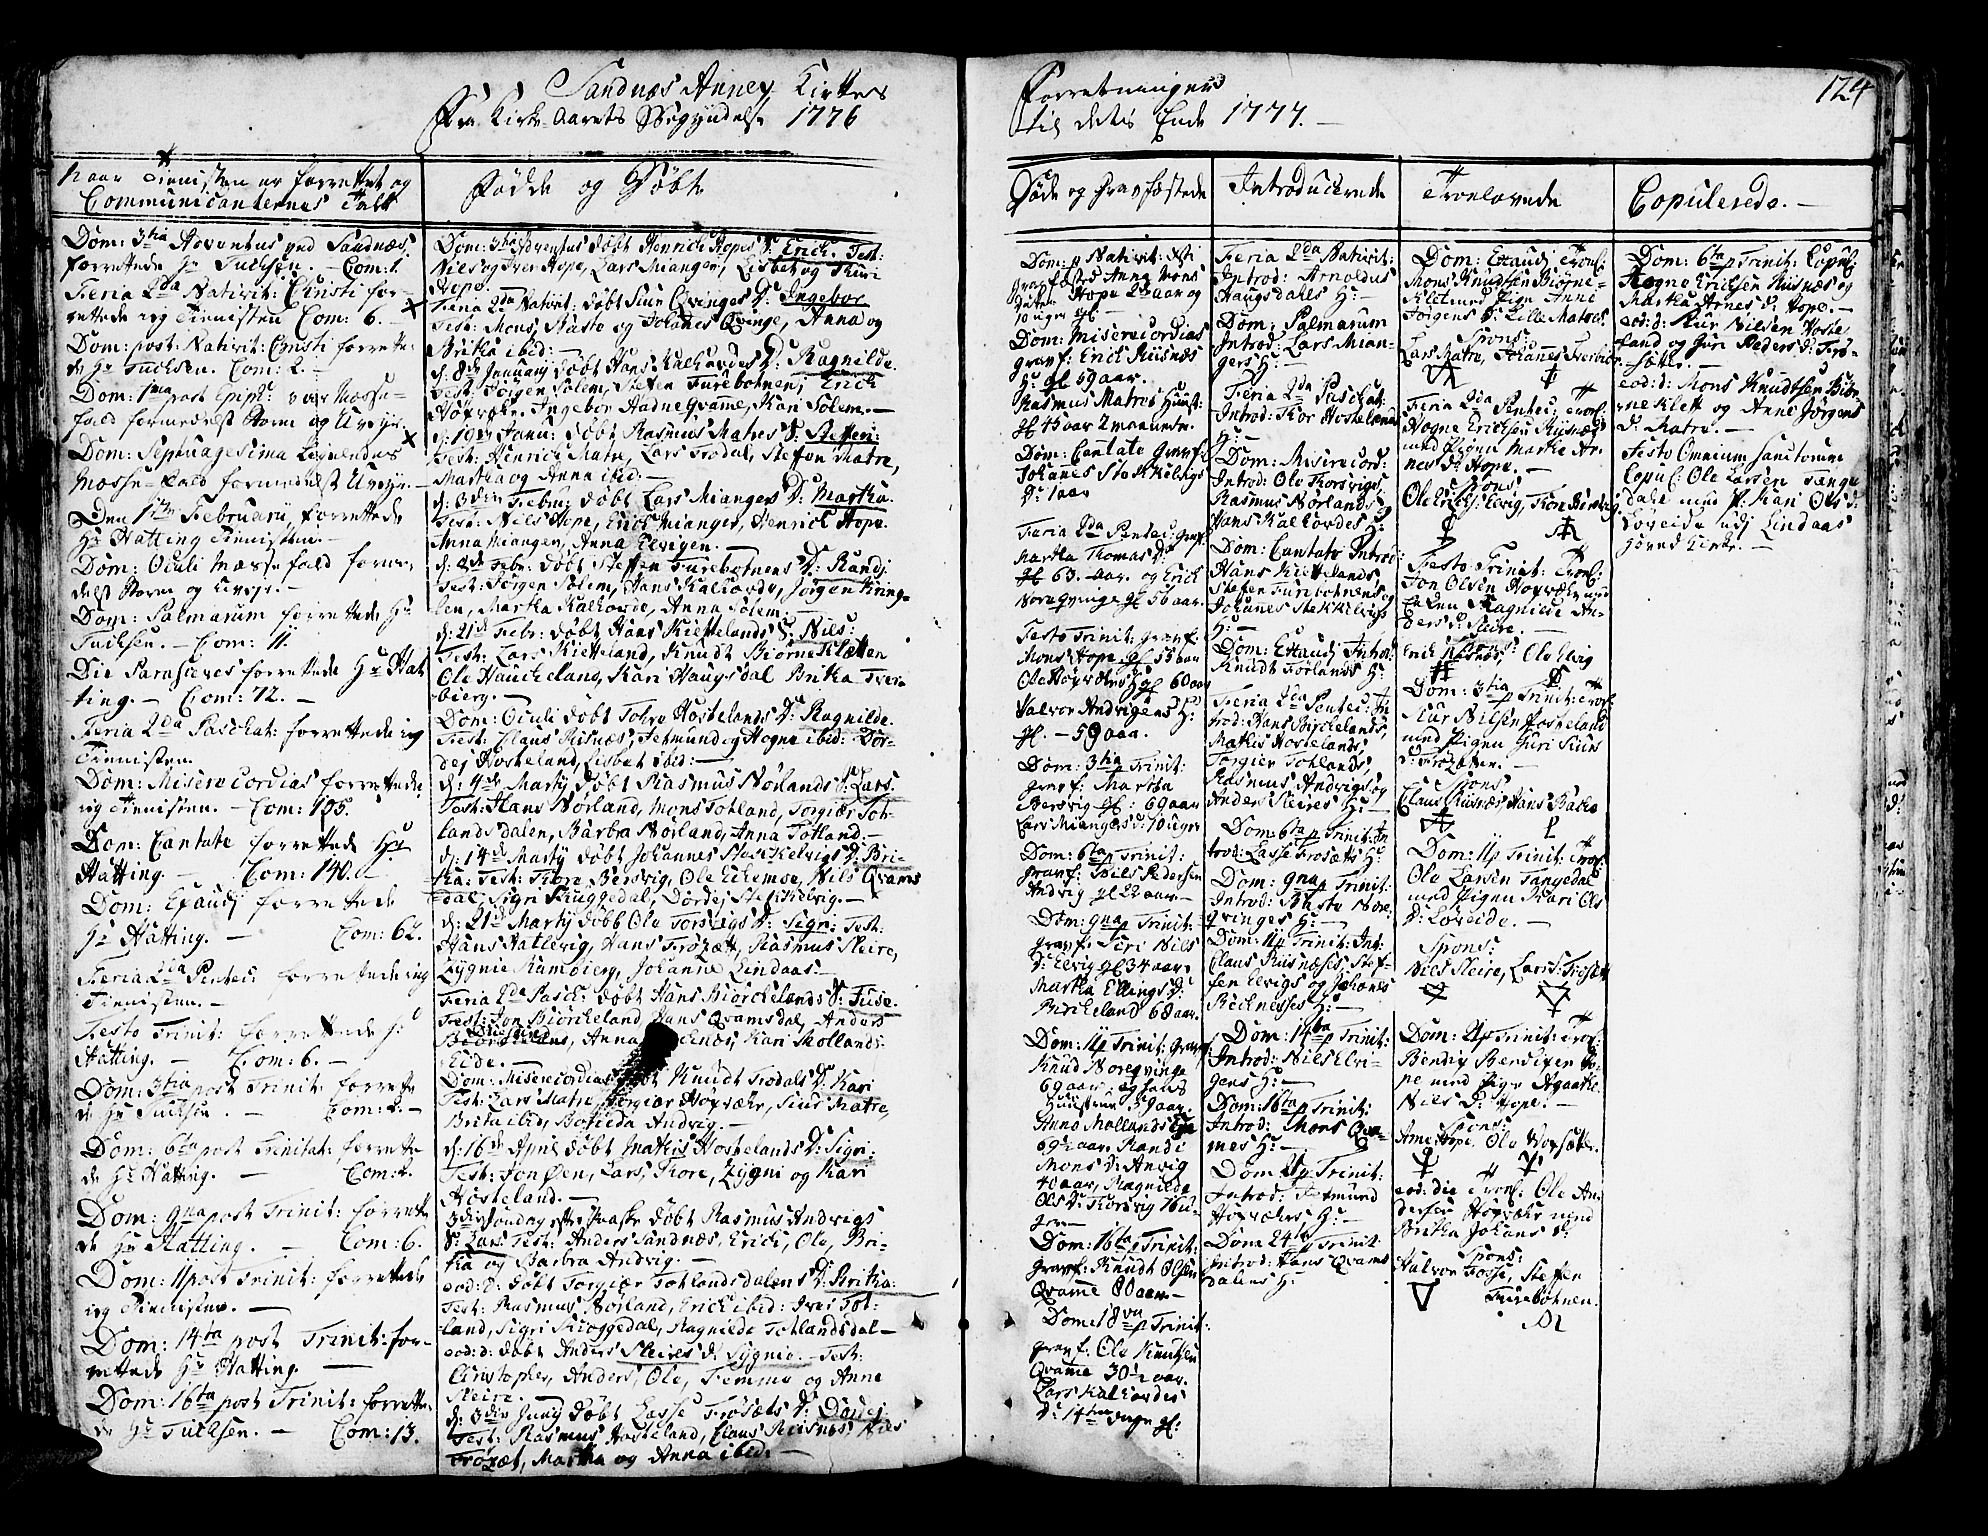 Sandnæs Annex Kirkes
Fra Kirke-Aarets Begyndelse 1776
Naar Tienisten er forrettet og
Communicanternes Tall
Dom: 3tia Adventus ved Sandnæs
forrettede Hr Tuchsen. - Com: 1.
Feria 2da Nativit: Christi for-
rettede ieg Tienisten Com: 6. -
Dom: post: Nativit: Christi forrette-
de Hr Tuchsen. Com: 2. -
Dom: 1ma post Epiph: var Messe-
fald formedelst Storm og Uveyr.
Dom: Septuagesima ligeledes
Messe-fald formedelst Uveyr. -
Den Februarii forrettede
Hr Hatting Tienisten. -
Dom: Oculi Messefald forme-
delst Storm og Uveyr. -
Dom: Palmarum forrettede Hr
Tuchsen. - Com: 11.
Die Parasceves forrettede Hr Hat
ting. - Com: 72. -
Feria 2da Paschat: forrettede ieg
Tienisten.
Dom: Misericordias forrettede
ieg Tienisten. - Com: 105.
Dom: Cantate forrettede Hr
Hatting. - Com: 140. -
Dom: Exaudj forrettede
Hr Hatting. - Com: 62.
Feria 2da Pentec: forrettede ieg
Tienisten. -
Festo Trinit: forrettede Hr
Hatting. - Com: 6. -
Dom: 3tia post Trinit: forrette
de Hr Tuchsen. - Com: 2. -
Dom: 6ta post Trinitat: forrette
de Hr Hatting. - Com:
Dom: 9na post Trinit: forrette
de Hr Hatting. - Com: 6.
Dom: 11 post Trinit: forrettede
ieg Tienisten. -
Dom: 14ta post Trinit: for-
rettede Hr Hatting. -
Dom: 16ta post Trinit: forrette-
de Hr Tuchsen. - Com: 13.
Fødde og Døbte
Dom: 3tia Adventus døbt Henrich Hopes S: Erich. Test:
Nils og Iver Hope, Lars Mianger, Lisbet og Guri
Hope. -
Feria 2da Nativit: døbt Siur Qvinges D: Ingebor
Test: Mons, Aaste og Johannes Qvinge, Anna og
Britha ibid: -
d: 8de January døbt Hans Kalhovdes D: Ragnilde.
Test: Jørgen Solem, Stefen Furebotnen, Erich
Ingebor Hadne Qvamme, Kari Solem. -
d: 19de Janu: døbt Rasmus Matres S: Steffen:
Test: Henrich Matre, Lars Trodal, Steffen Matre,
Martha og Anna ibid: -
d: 3die Febru: døbt Lars Miangers D: Martha.
Test: Nils Hope, Erich Mianger, Henrich Hope.
Anna Mianger, Anna Elvigen. -
d: 8de Febr: døbt Steffen Furebotnens D: Randj
Test: Jørgen Solem, Hans Kalhovde, Jørgen
len, Martha Kalhovde, Anna Solem. -
d: 21de Febr: døbt Hans Kiettelands S: Nils:
Test: Lars Kietteland, Knudt Biørneklætten
Ole Haucheland, Kari Haugsdal Britha
bierg. -
Dom: Oculi døbt Tolve Hostelands D: Ragnilde.
Test: Claus Risnæs, Fetmund og Hogne ibid: Dor-
dej Hosteland, Lisbet ibid: -
d: 4de Marty døbt Rasmus Nørlands S: Lars.
Test: Hans Nørland, Mons Totland, Torgier Tot-
landsdalen, Barbra Nørland, Anna Totland. -
d: 14de Marty døbt Johannes Stockelvigs D: Bri-
tha: Test: Tore Bersvig, Ole Echemoe, Nils Qvams
dal, Sigri Skuggedal, Dordej Stockelvig. -
d: 21de Marty døbt Ole Torsvigs D: Sigri: Test:
Hans Hatlevig, Hans Frøsæt, Rasmus Sleire,
Lygnie Kambierg, Johanne Lindaas. -
Feria 2da Pasch: døbt Hans Biørchelands S:
Test: Jon Biørcheland, Hans Qvamsdal, Anders
Kari Mollands
Eide. -
Dom: Misericordias døbt Knudt Trodals D: Kari
Test: Lars Matre, Torgier Siur Matre,
Brita ibid, Botilda Andvig. -
d: 16de April døbt Mathis Hostelands D: Sigri:
Test: Jon Øen, Lars, Tore, Lygni og Kari
Hosteland. -
3die Søndag efter Paaske døbt Rasmus Andvigs
S: Lars Test: Anders Sandnæs, Erich, Ole, Bri-
tha og Barbra Andvig. -
eod: d: døbt Torgier Totlandsdalens D: Britha:
Test: Rasmus Nørland, Erich ibid: Iver Tot-
land, Sigri Skoggedal, Ragnilde Totlandsdal -
eod: d: døbt Anders Sleires D: Lygnie. - Test:
Christopher, Anders, Ole, Femme og Anne
Sleire. -
d: 3die Juny døbt Lasse Frøsets D: Dordej
Test: Rasmus Hosteland, Claus Risnes, Nils
Frøset, Martha og Anna ibid: -
Forretninger
til dets Ende 1777. -
124
Døde og Gravfæstede
Dom: p Nativit: Xsti
gravfæsted Anna Mons
Datter Hope 2 aar og
10 uger gl -
Dom: Misericordias
gravf: Erich Risnæs
H: gl 59 aar.
Rasmus Matres Hust:
gl 45 aar 2 maaneder.
Dom: Cantate Gravf:
Johannes Stockelvigs
D: 1 aar
Feria 2da Pentec: gravf:
Martha Thomas D:
gl 63. aar. og Erich
Noreqvinge gl 56 aar.
Festo Trinit: gravf:
Mons Hope gl 55 aar
gl 60 aar
Halvor Andvigens H:
gl. - 59 aar.
Dom: 3tia Trinit:
gravf: Martha
Bersvig gl: 69 aar
Lars Miangers D: 10 uger
Dom: 6ta p Trinit:
gravf: Nils Pedersen
Andvig gl 22 aar. -
Dom: 9na p Trinit:
gravf: Siri Nils
D: Elvig gl 34 aar.
Martha Ellings D:
Birckeland 68 aar.
Dom: 11 p Trinit: Gravf:
Knud Noreqvinge
69 aar. og hans
Hustrue 59 aar.
Anna Mollands Eide
69 1/2 aar. Randi
Mons D: Anvig
40 aar, Ragnilde
Ols D: Torsvig 16 u-
ger -
Dom: 16ta p Trinit:
gravf: Knudt Olsen
Qvame 80 aar -
Dom: 18va p Trinit:
gravf: Ole Knutsen
Qvame 30 1/2 aar.
Lars Kalhovdes
D: 14 dage gl:
Introducerede
Feria 2da Nativit:
Introd: Arnoldus
Haugsdales H: -
Dom: Palmarum
Introd: Lars Mian-
gers H: -
Feria 2da Paschat:
Introd: Tor Hostelands
H: -
Dom: Misericord:
Introd: Ole Torsvigs,
Rasmus Nørlands og
Hans Kalhovdes H:
Dom: Cantate Introd:
Hans Kiettelands,
Stefen Furebotnens og
Johanes Stokkelvigs
H: -
Dom: Exaudj Introd:
Knudt Førlands H:
Feria 2da Pentec: In-
trod: Hans Birckelands,
Mathis Hostelands,
Torgier Totlands,
Rasmus Andvigs og
Anders Sleires H: -
Dom: 6ta p Trinit: In
trod: Lasse Frosets H:
Dom: 9na p Trinit:
Introd: Aaste Nore
qvinges H: -
Dom: 11 p Trinit: Int:
Claus Risnæses, Stef-
fen Elvigs og Johanes
H: -
Dom: 14ta p Trinit:
Introd: Nils Elvi-
gens H: -
Dom: 16ta p Trinit:
Introd: Mons Qva-
mes H: -
Dom 21 p Trinit:
Introd: Fetmund
H: -
Dom 24 p Trinit:
Introd: Hans Qvams
dalens H: -
Troelovede
Dom: Exaudj Trol:
Mons Knudsen Biørne-
klet med Pigen Anne
Jørgens D: Lille Matre.
Spons:
Lars Matre, Johanes
Feria 2da Pentec: Trol:
Hogne Erichsen Risnæs
med Pigen Martha Ar-
nes D: Hope. -
Spons:
Elvig,
Festo Trinit: Trol:
Jon Olsen med
Ragnilde An-
ders D: Sleire. -
Spons:
Erich Risnes, Ole Elvig
Dom: 3tia p Trinit: Trol:
Siur Nilsen Hosteland
med Pigen Guri Siurs
D: Frøsetten.
Spons:
Claus Risnæs, Hans
Dom: 11 p Trinit: Trol:
Ole Larsen Tangedal
med Pigen Kari Ols
D: Løveide. -
Spons:
Nils Sleire, Lars Frøset
Dom: 21 p Trinit: Trol:
Bendix Bendixen Ho-
pe med Pigen Agathe
Nils D: Hope. -
Spons:
Arne Hope, Ole
eod: die Trol: Ole An-
dersen med
Britha Johans D:
Spons:
Halvor Fosse, Steffen
Furebotnen.
Copulerede. -
Dom: 6ta p Trinit: Copul:
Hogne Erichsen Risnæs og
Martha Arnes D: Hope. -
eod: d: Siur Nilsen Hoste
land og Guri Siurs D: Frø-
sette. -
eod: d: Mons Knudtsen Biør
neklett og Anne Jørgens
D: Matre. -
Festo Omnium Sanctorum
Copul: Ole Larsen Tange
dal med P: Kari Ols D:
Løveide udj Lindaas
Hoved Kirke. -